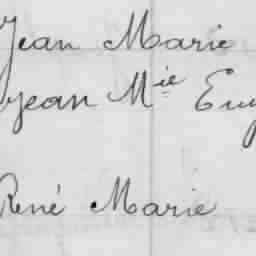 Jean Marie
Jean Mie
René Marie